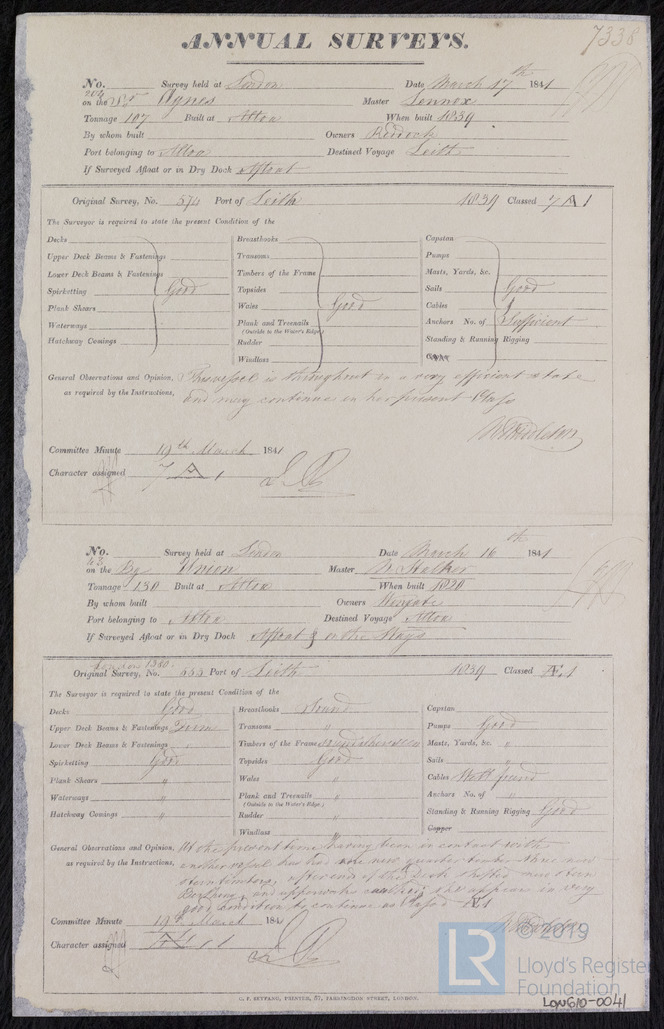 7338
ANNUAL SURVEYS.
No. 204 Survey held at London Date March 17th 1841
on the Agnes Master Lennox
Tonnage 107 Built at Alloa When built 1839
By whom built Owners
Port belonging to Alloa Destined Voyage Leith
If Surveyed Afloat or in Dry Dock Afloat
Original Survey, No. 574 Port of Leith 1839 Classed 7 A 1
The Surveyor is required to state the present Condition of the
Decks
Upper Deck Beams & Fastenings
Lower Deck Beams & Fastenings
Spirketting Good
Plank Shears
Waterways
Hatchway Comings
Breasthooks
Transoms
Timbers of the Frame
Topsides
Wales Good
Plank and Treenails
(Outside to the Water's Edge)
Rudder
Windlass
Capstan
Pumps
Masts, Yards, &c.
Sails Good
Cables
Anchors No. of Sufficient
Standing & Running Rigging
Copper
General Observations and Opinion, This vessel is throughout in a very efficient state
as required by the Instructions, and may continue in her present Class
Committee Minute 19th March 1841
Character assigned 7 A 1
No. 43 Survey held at London Date March 16th 1841
on the Bg Union Master Stalker
Tonnage 130 Built at Alloa When built 1820
By whom built Owners
Port belonging to Alloa Destined Voyage Alloa
If Surveyed Afloat or in Dry Dock Afloat & on the Ways
London 1380.
Original Survey, No. 555 Port of Leith 1839 Classed Æ 1
The Surveyor is required to state the present Condition of the
Decks Good
Upper Deck Beams & Fastenings Firm
Lower Deck Beams & Fastenings "
Spirketting Good
Plank Shears "
Waterways "
Hatchway Comings "
Breasthooks Sound
Transoms "
Timbers of the Frame
Topsides Good
Wales "
Plank and Treenails "
(Outside to the Water's Edge)
Rudder "
Windlass "
Capstan
Pumps Good
Masts, Yards, &c. "
Sails "
Cables Well found
Anchors No. of "
Standing & Running Rigging Good
Copper
General Observations and Opinion, At the present time having been in contact with
as required by the Instructions, another vessel has had one new quarter timber three new
stern timbers, after end of the Deck shifted new stern
and upperworks she appears in very
good condition to continue as Classed Æ 1
Committee Minute 19th March 1841
Character assigned Æ 1
G. F. SEYFANG, PRINTER, 57, FARRINGDON STREET, LONDON.
© 2019
LR
Lloyd's Register
Foundation
LON610-0041